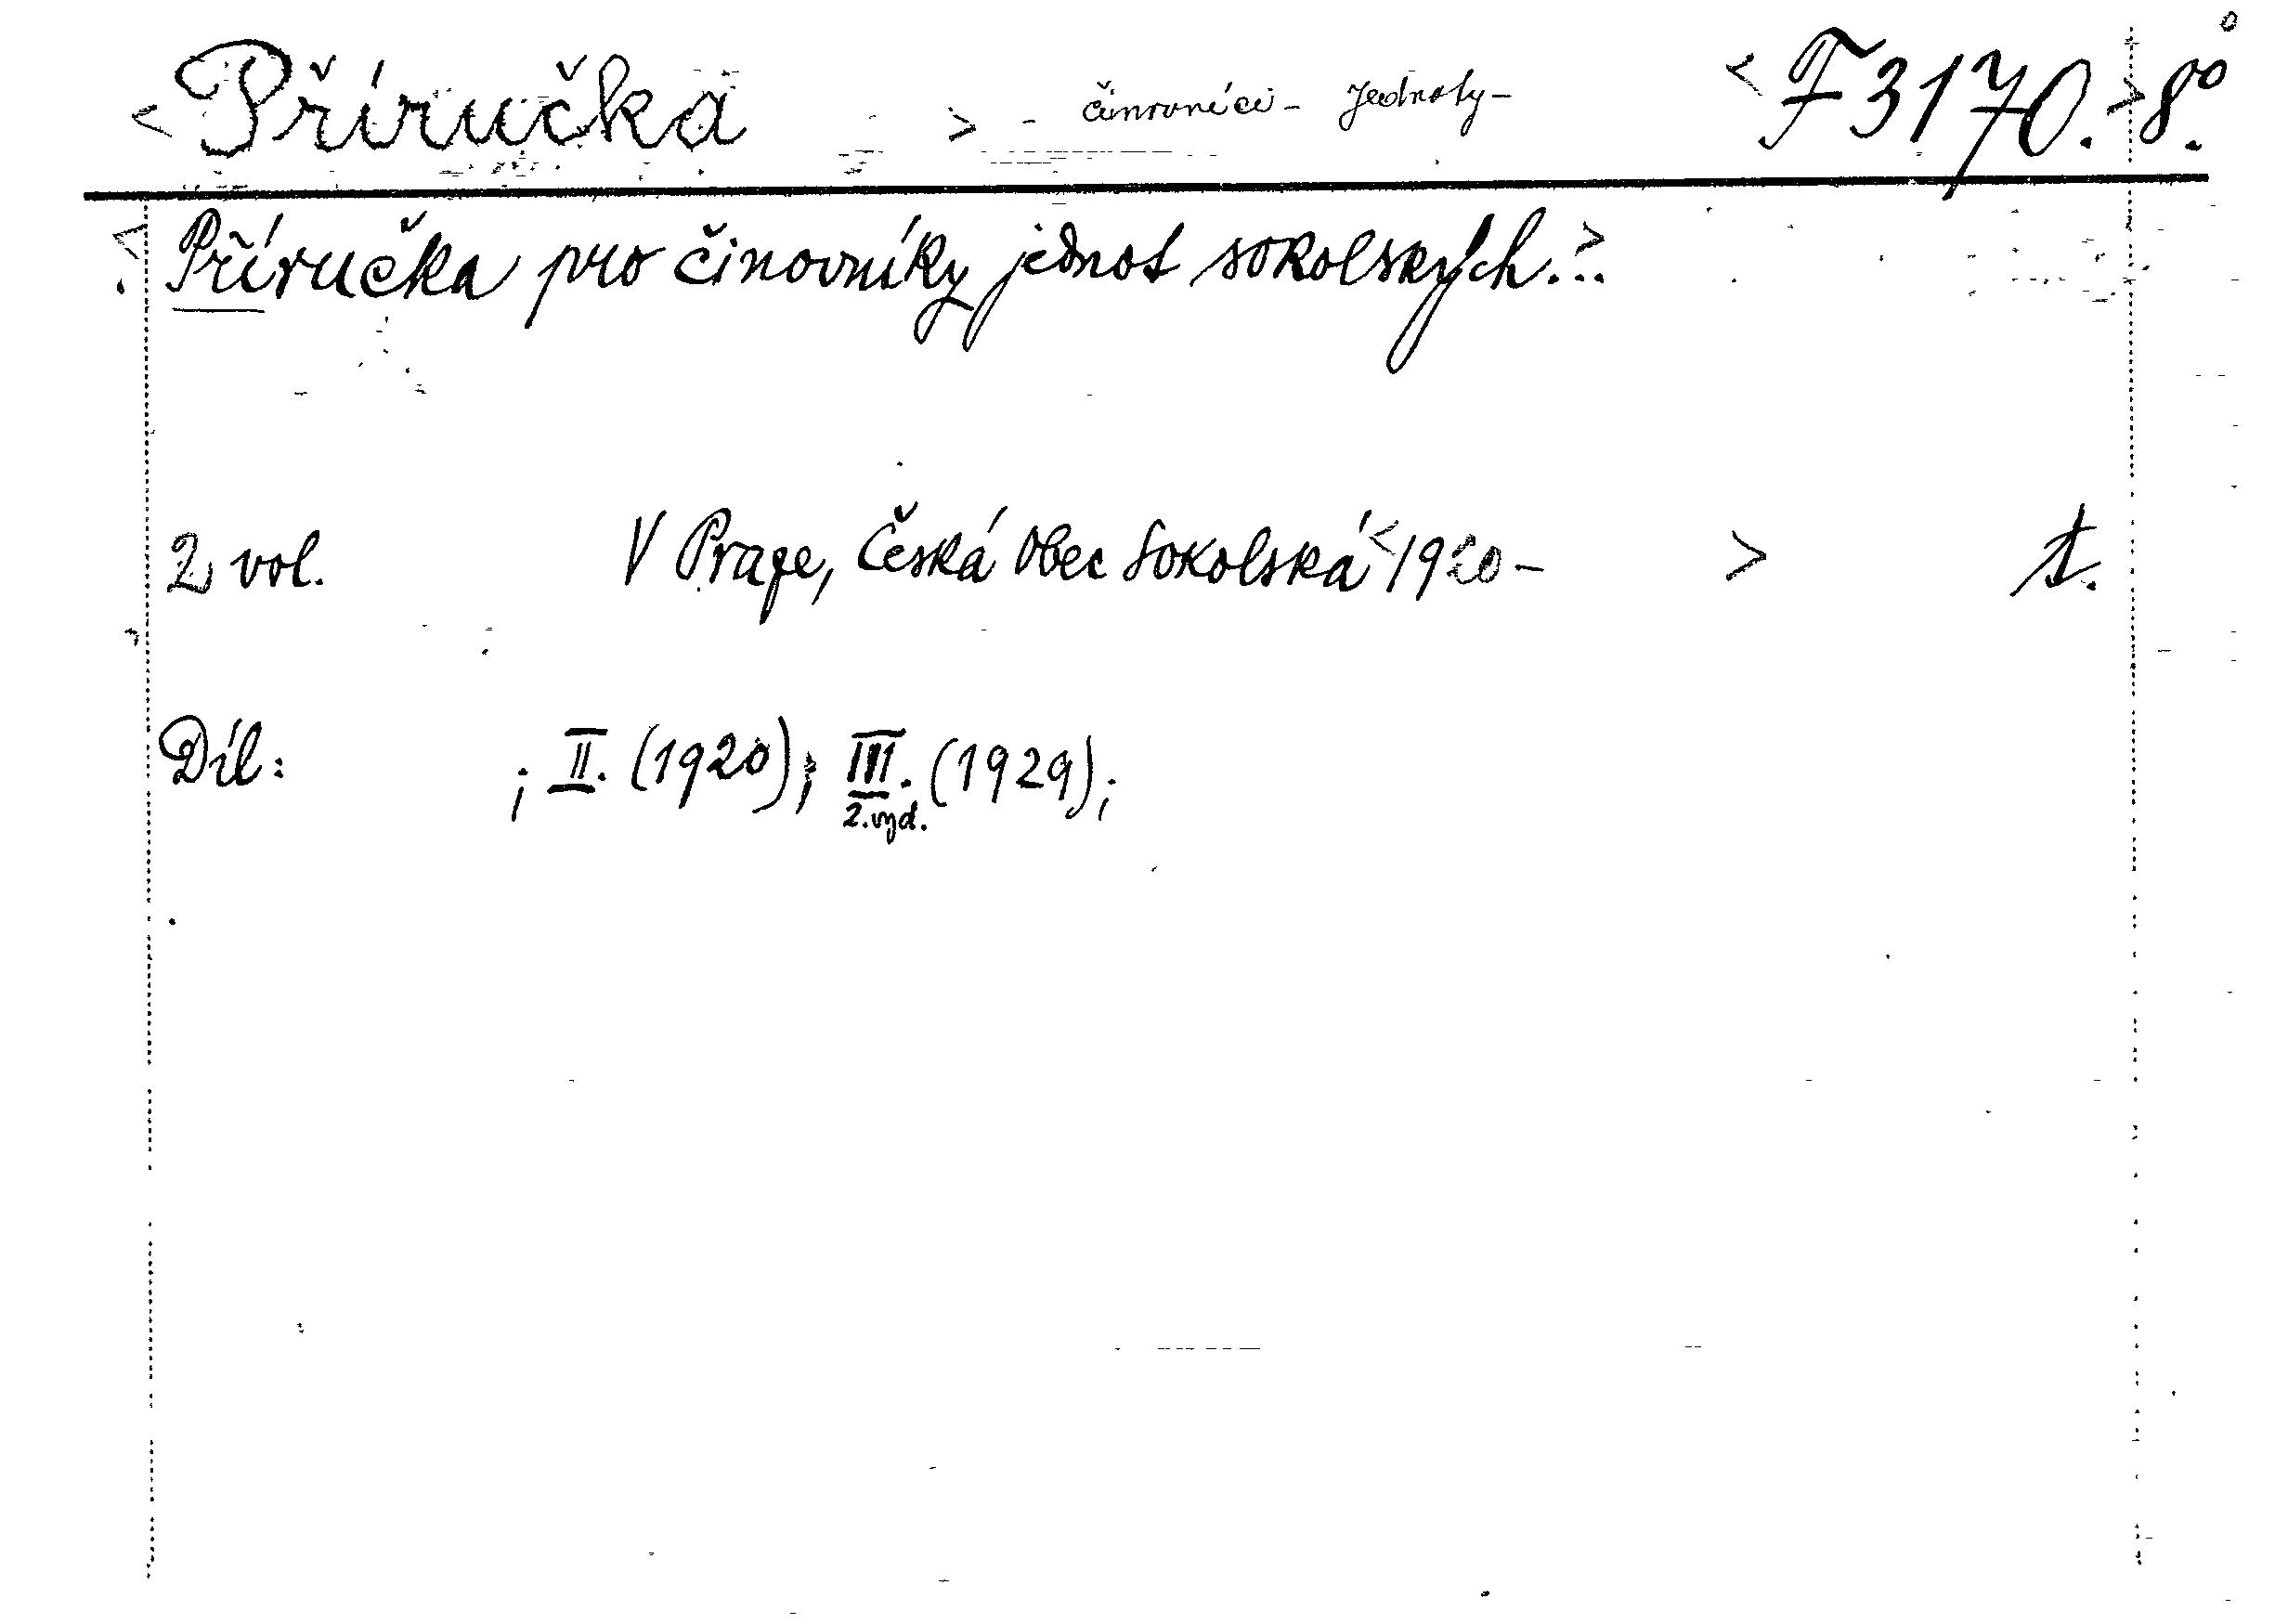 <Příručka > - činovníci - Jednoty - <F 3170.>8°.
<Příručka pro činovníky jednot sokolských.>.
2 vol. V Praze, Česká Obec Sokolská <1920- > t.
Díl: ; II. (1920); III. (1929);
2. vyd.